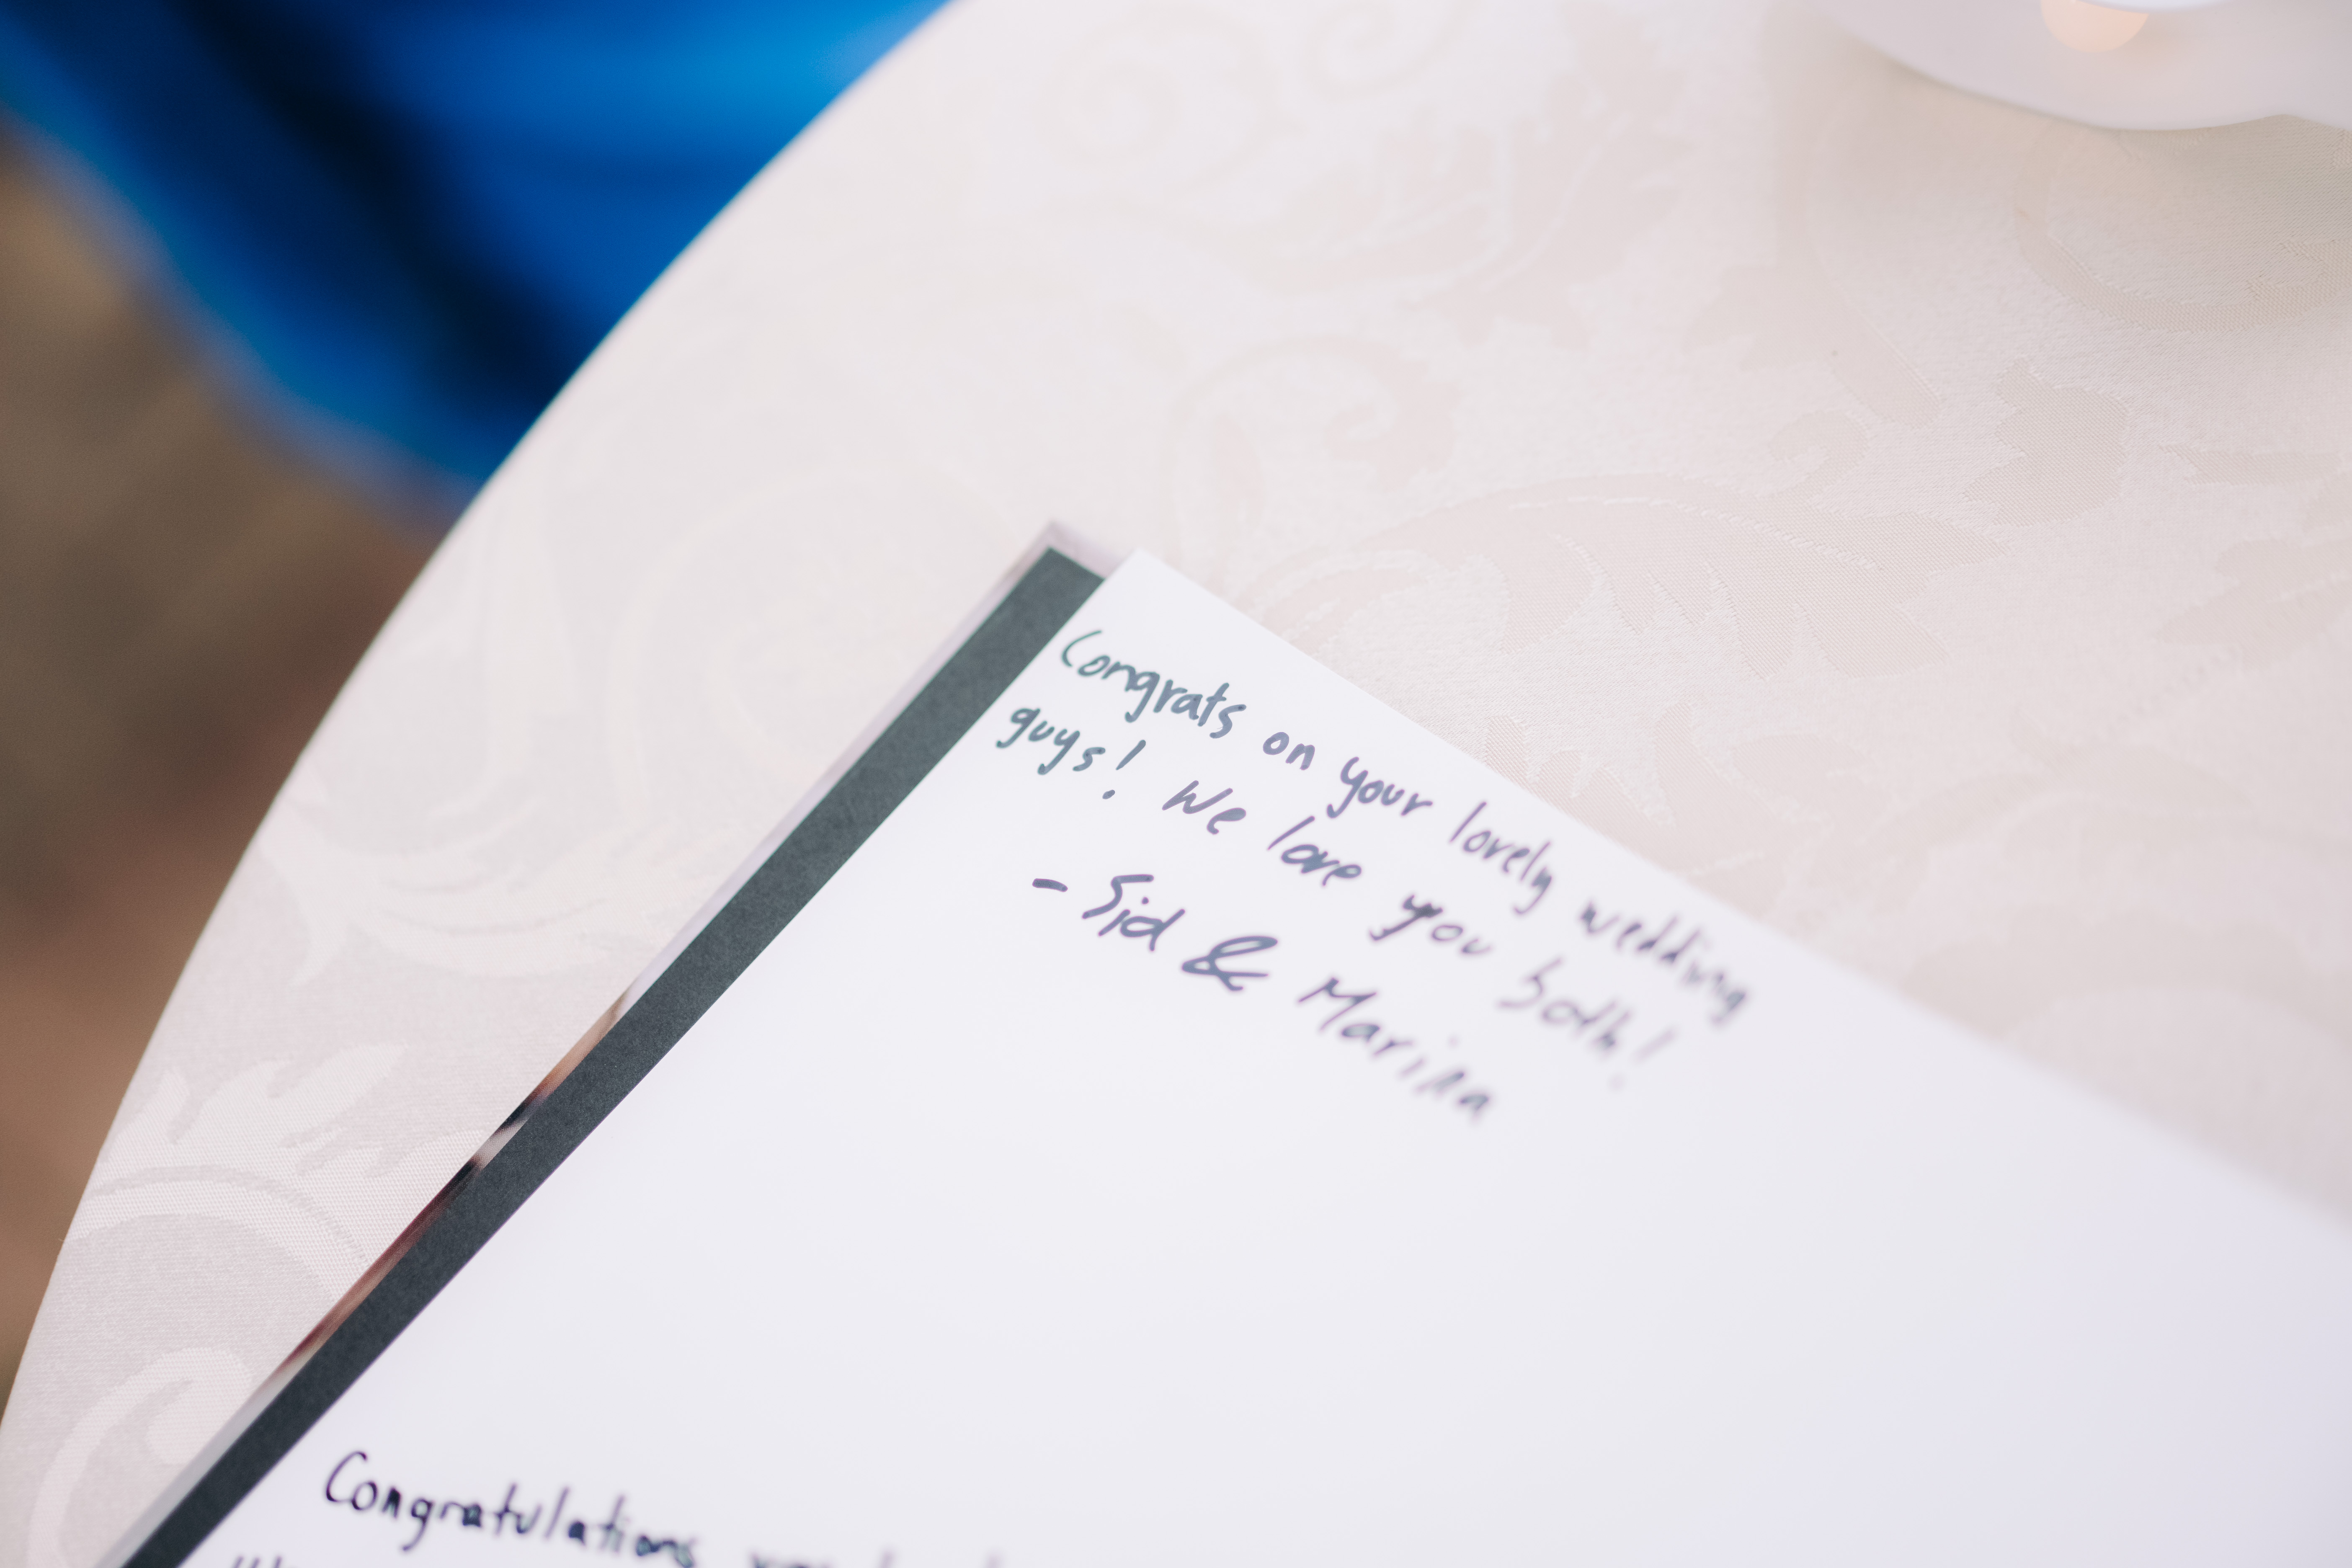 Congrats on your lovely wedding
guys! We love you both!
- Sid & Marina
Congratulations